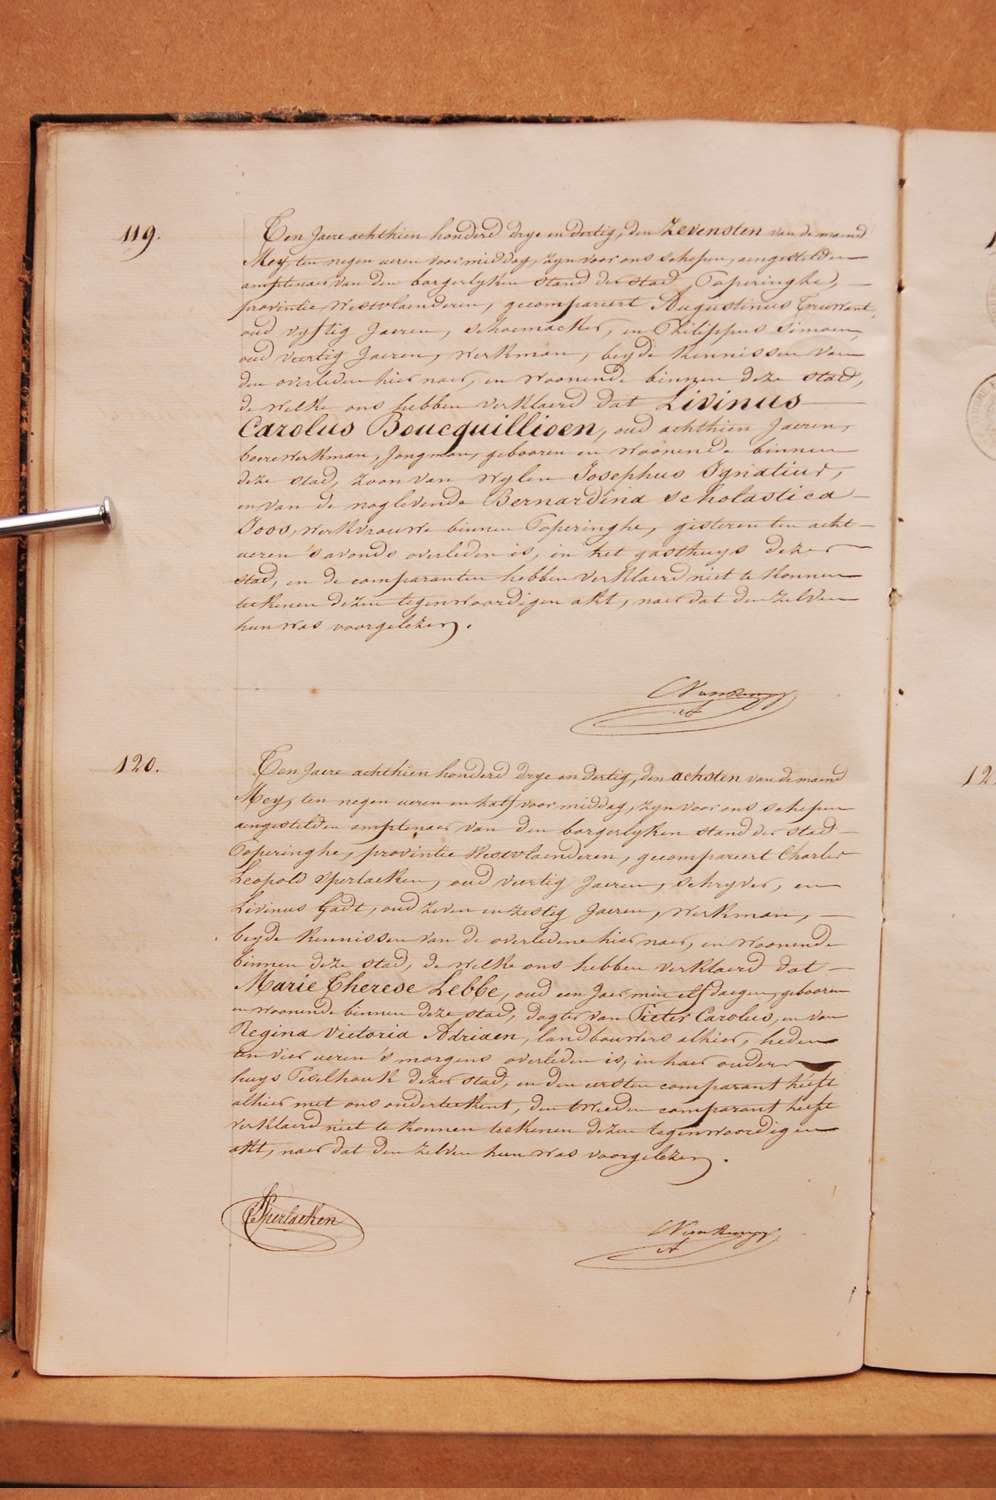 119.
Ten Jaere achthien honderd drye en dertig, den Zevensten van de maend
Mey, ten negen ueren voormiddag, zyn voor ons schepen, aengestelden
amptenaer van den borgerlyken stand der stad Poperinghe,
provintie Westvlaenderen, gecompareert Augustinus Truwant,
oud vyftig Jaeren, schoemaeker, en Philippus Simoen,
oud veertig Jaeren, werkman, beyde kennissen van
den overleden hier naer, en woonende binnen deze stad,
de welke ons hebben verklaerd dat Livinus
Carolus Boucquillioen, oud achthien Jaeren,
boerewerkman, Jongman, gebooren en woonende binnen
deze stad, zoon van wylen Josephus Ignatius,
en van de noglevende Bernardina Scholastica
Joos, werkvrouwe binnen Poperinghe, gisteren ten acht
ueren 's avonds overleden is, in het gasthuys dezer
stad, en de comparanten hebben verklaerd niet te konnen
teekenen dezen tegenwoordigen akt, naer dat den zelven
hun was voorgelezen.
120.
Ten Jaere achthien honderd drye en dertig, den achsten van de maend
Mey, ten negen ueren en half voormiddag, zyn voor ons schepen
aengestelden amptenaer van den borgerlyken stand der stad
Poperinghe, provintie Westvlaenderen, gecompareert Charles
Leopold Sperlaeken, oud veertig Jaeren, schryver, en
Livinus Gadt, oud zeven en zestig Jaeren, werkman,
beyde kennissen van de overledene hier naer, en woonende
binnen deze stad, de welke ons hebben verklaerd dat
Marie Therese Lebbe, oud een Jaer min elf daegen, gebooren
en woonende binnen deze stad, dogter van Pieter Carolus, en van
Regina Victoria Adriaen, landbouwers alhier, heden
ten vier ueren 's morgens overleden is, in haer ouders
huys Peselhoek dezer stad, en den eersten comparant heeft
alhier met ons onderteekent, den tweeden comparant heeft
verklaerd niet te konnen teekenen dezen tegenwoordigen
akt, naer dat den zelven hun was voorgelezen.
Sperlaeken
12